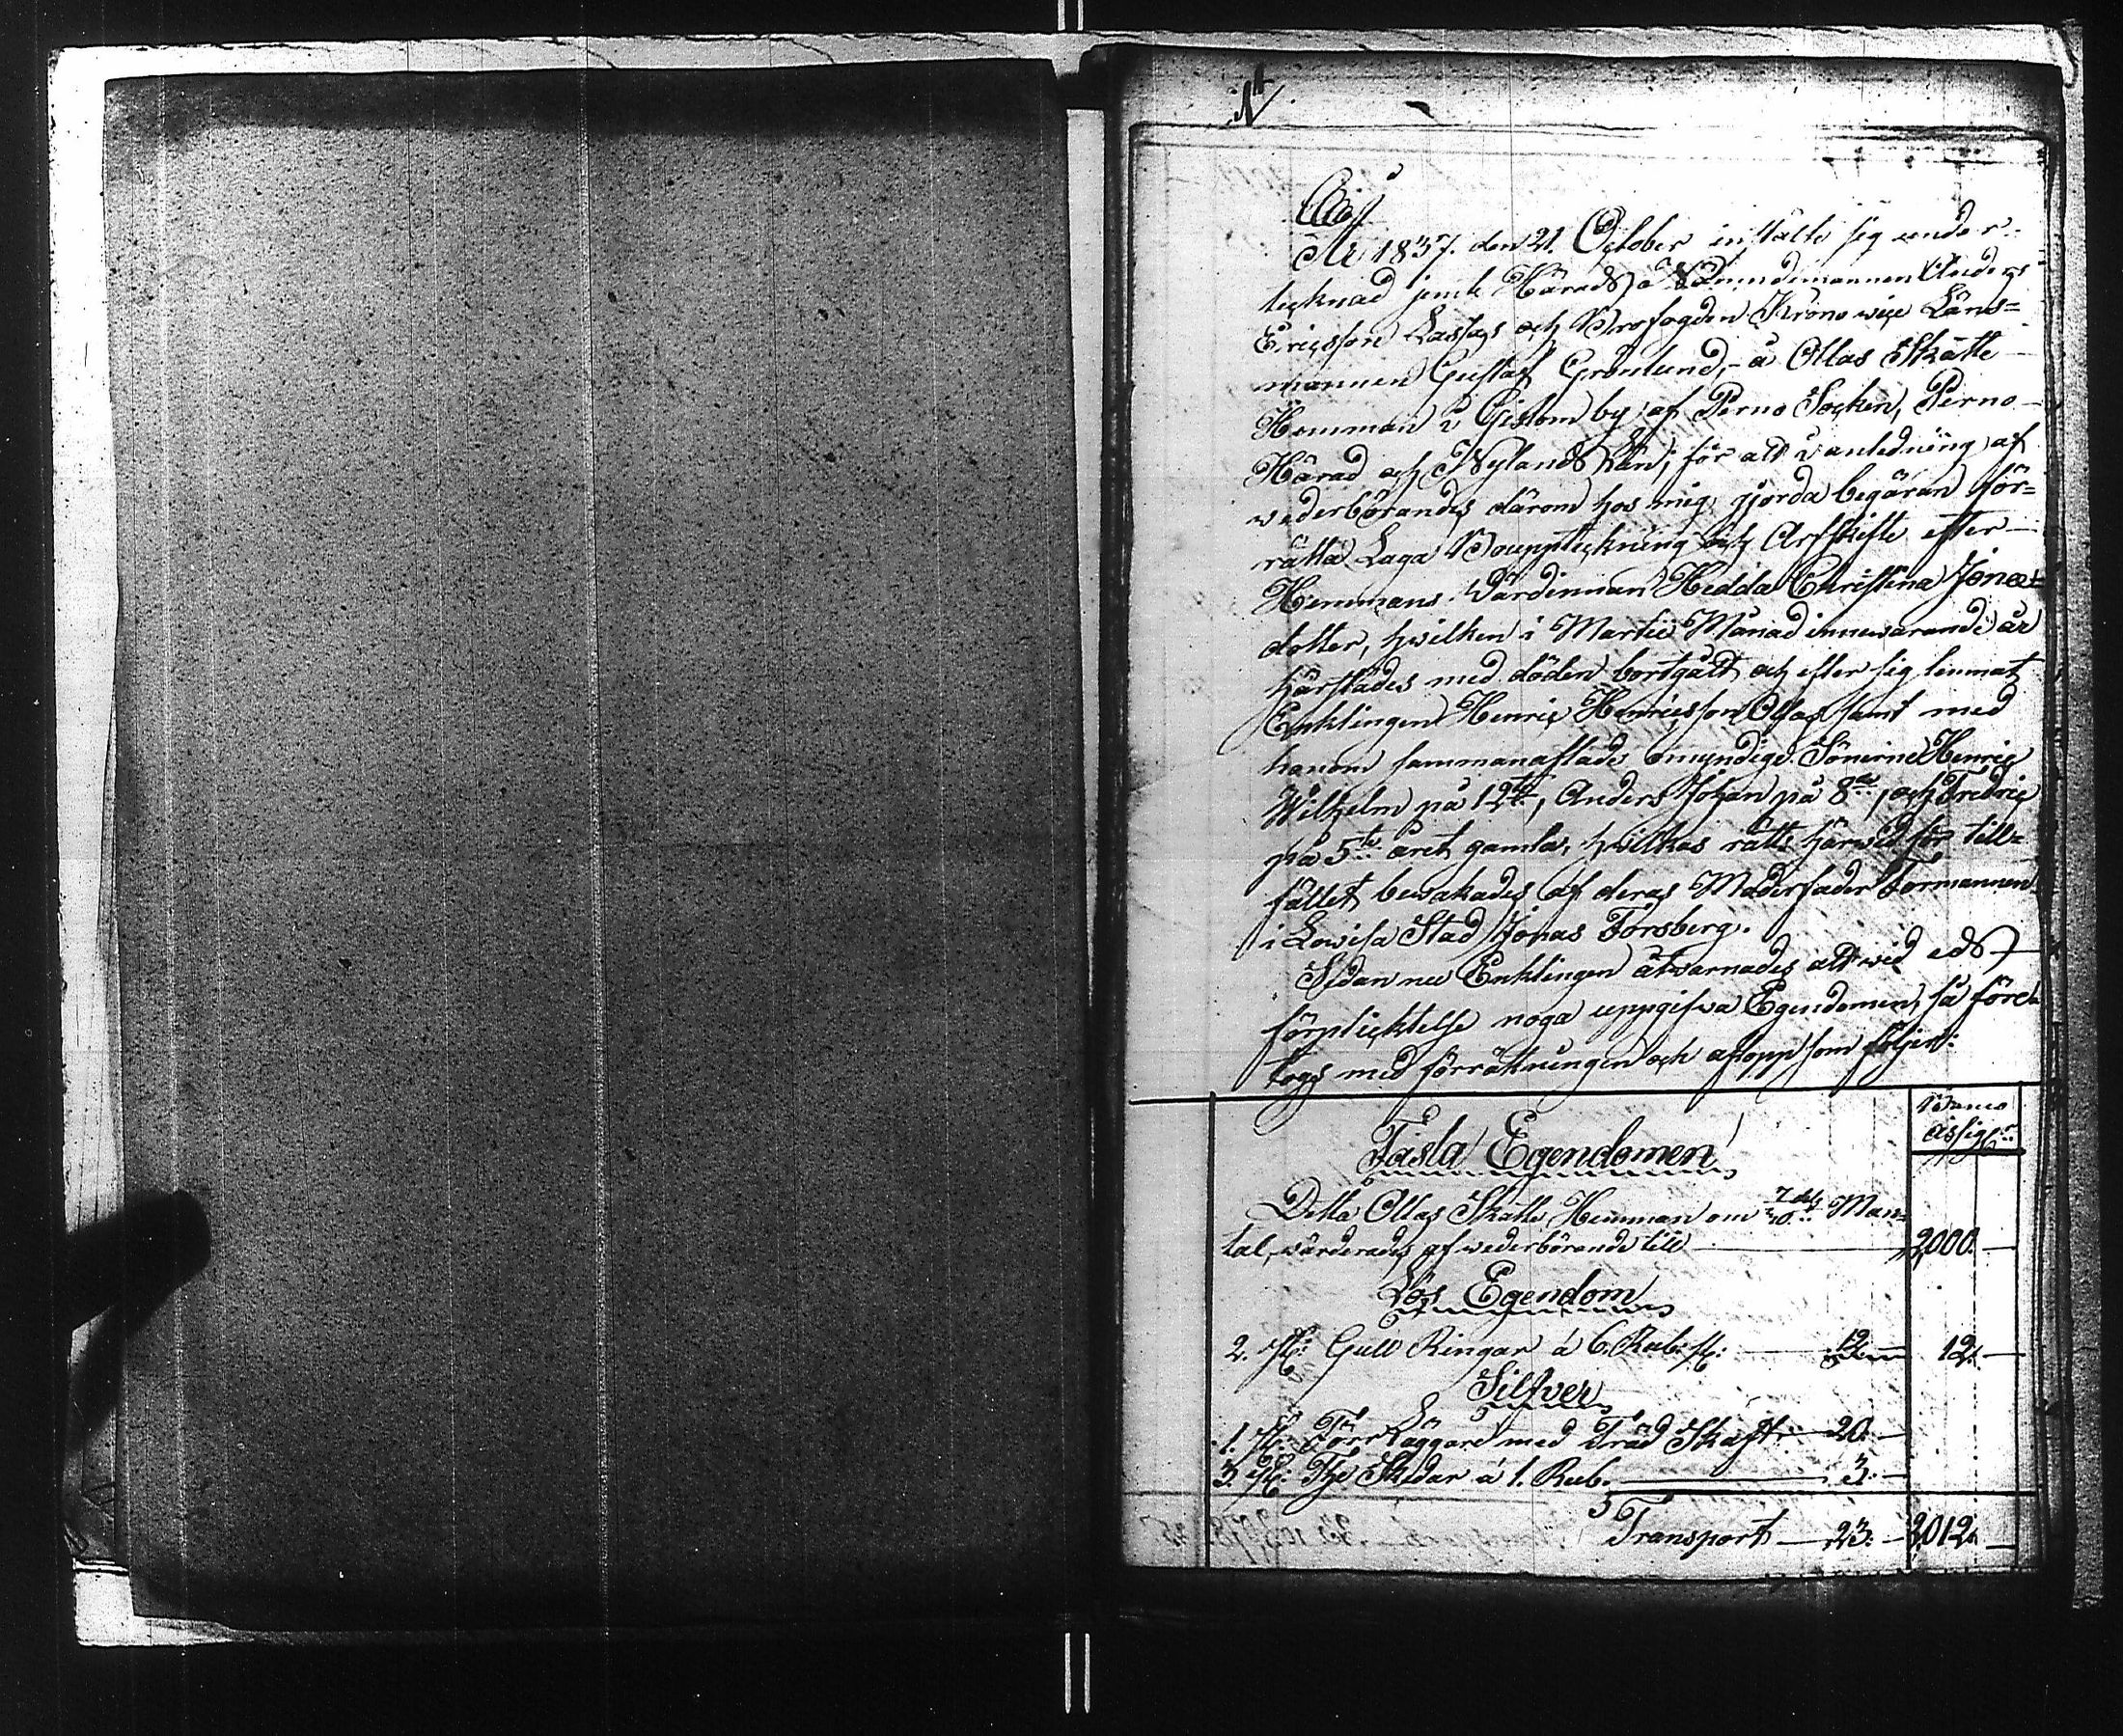 År 1837. den 21. October instälte sig under-
tecknad jemte Härads Nämndemannen Anders
Ericsson Lassas och Brofogden Krono wice Läns-
mannen Gustaf Grönlund, å Ollas Skatte
Hemman i Gislom by af Perno Socken, Perno
Härad och Nylands Län, för att i anledning af
wederbörandes därom hos mig gjorda begäran för-
rätta Laga Bouppteckning och Arfskifte efter
Hemmans Wärdinnan Hedda Christina Jonæ-
dotter, hwilken i Martii Månad innewarande år
härstädes med döden bortgått och efter sig lemnat
Enklingen Henric Henricsson Ollas samt med
honom sammanaflade omyndige Sönerne Henric
Wilhelm på 12te, Anders Johan på 8de, och Fredric
på 5te året gamla, hwilkas rätt härwid för till-
fället bewakades af deras Moderfader Formannen
i Lowisa Stad Jonas Forsberg.
Sedan nu Enklingen åtwarnades att wid eds
förplicktelse noga uppgifwa Egendomen, så före-
togs med förrättningen och aflopp som följer:
Banco
Assigr:
Fasta Egendomen
Detta Ollas Skatte Hemman om 7/10 dels Man-
tal, wärderades af wederbörande till 2000. —
Lös Egendom
2. st: Gull Ringar á 6. Rub: st: 12. — 12. —
Silfver
1. st: Förr Läggare med Träd Skaft 20. —
3. st: The Skedar á 1. Rub. 3. —
Transport — 23. — 2012. —